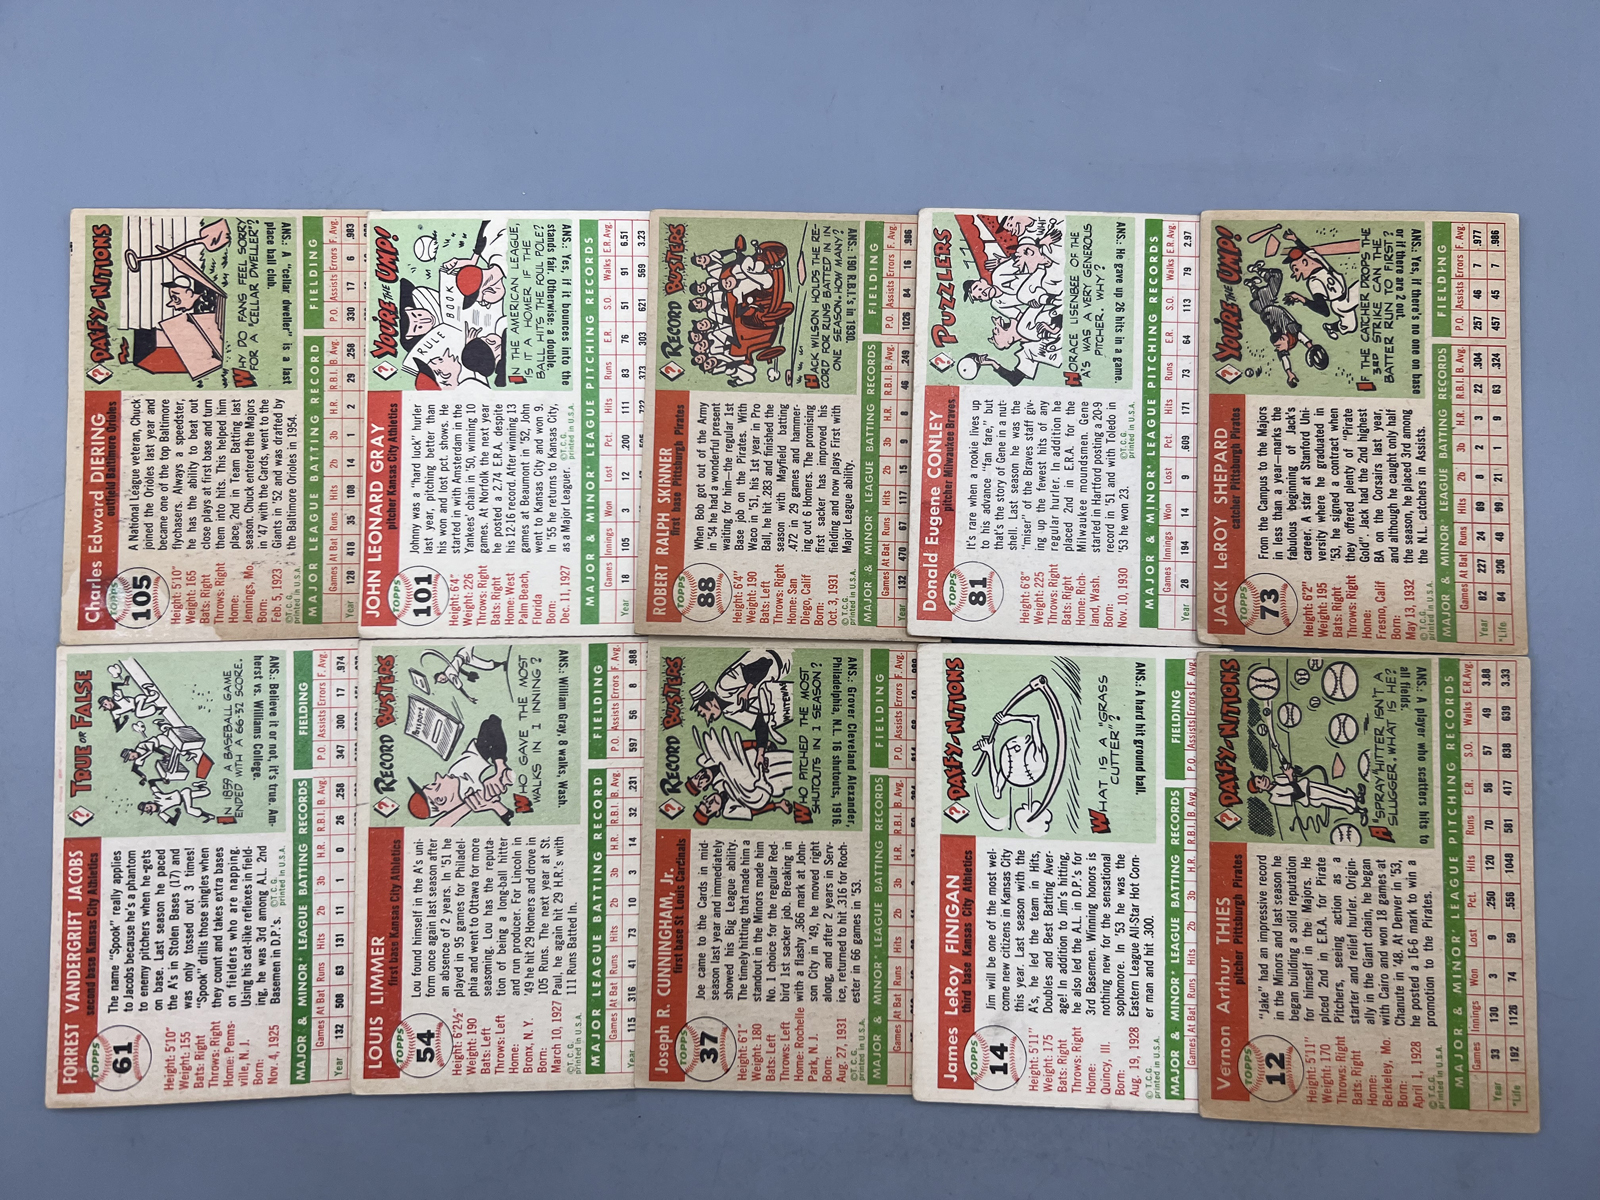 Charles Edward DIERING
outfield Baltimore Orioles
TOPPS
105
Height: 5'10"
Weight: 165
Bats: Right
Throws: Right
Home:
Jennings, Mo.
Born:
Feb. 5, 1923
© T.C.G.
printed in U.S.A.
A National League veteran, Chuck
joined the Orioles last year and
became one of the top Baltimore
flychasers. Always a speedster,
he has the ability to beat out
close plays at first base and turn
them into hits. This helped him
place 2nd in Team Batting last
season. Chuck entered the Majors
in '47 with the Cards, went to the
Giants in '52 and was drafted by
the Baltimore Orioles in 1954.
?
DAFFY-NITIONS
WHY DO FANS FEEL SORRY
FOR A "CELLAR DWELLER"?
ANS.: A "cellar dweller" is a last
place ball club.
MAJOR LEAGUE BATTING RECORD FIELDING
Games At Bat Runs Hits 2b 3b H.R. R.B.I. B. Avg. P.O. Assists Errors F. Avg.
Year 128 418 35 108 14 1 2 29 .258 330 17 6 .983
JOHN LEONARD GRAY
pitcher Kansas City Athletics
TOPPS
101
Height: 6'4"
Weight: 226
Throws: Right
Bats: Right
Home: West
Palm Beach,
Florida
Born:
Dec. 11, 1927
Johnny was a "hard luck" hurler
last year, pitching better than
his won and lost pct. shows. He
started with Amsterdam in the
Yankees' chain in '50, winning 10
games. At Norfolk the next year
he posted a 2.74 E.R.A. despite
his 12-16 record. After winning 13
games at Beaumont in '52, John
went to Kansas City and won 9.
In '55 he returns to Kansas City,
as a Major Leaguer.
© T.C.G.
printed in U.S.A.
?
YOU'RE THE UMP!
RULE BOOK
IN THE AMERICAN LEAGUE,
IS IT A HOMER IF THE
BALL HITS THE FOUL POLE?
ANS.: Yes, if it bounces into the
stands fair. Otherwise; a double.
MAJOR & MINOR* LEAGUE PITCHING RECORDS
Games Innings Won Lost Pct. Hits Runs E.R. S.O. Walks E.R. Avg.
Year 18 105 3 12 .200 111 83 76 51 91 6.51
373 303 621 569 3.23
ROBERT RALPH SKINNER
first base Pittsburgh Pirates
TOPPS
88
Height: 6'4"
Weight: 190
Bats: Left
Throws: Right
Home: San
Diego, Calif
Born:
Oct. 3, 1931
© T.C.G.
printed in U.S.A.
When Bob got out of the Army
in '54 he had a wonderful present
waiting for him—the regular 1st
Base job on the Pirates. With
Waco in '51, his 1st year in Pro
Ball, he hit .283 and finished the
season with Mayfield batting
.472 in 29 games and hammer-
ing out 6 Homers. The promising
first sacker has improved his
fielding and now plays First with
Major League ability.
?
RECORD BUSTERS
HACK WILSON HOLDS THE RE-
CORD FOR RUNS BATTED IN IN
ONE SEASON. HOW MANY?
ANS.: 190 R.B.I.'s in 1930.
MAJOR & MINOR* LEAGUE BATTING RECORDS FIELDING
Games At Bat Runs Hits 2b 3b H.R. R.B.I. B. Avg. P.O. Assists Errors F. Avg.
132 470 67 117 15 9 8 46 .249 1026 84 16 .986
Donald Eugene CONLEY
pitcher Milwaukee Braves
TOPPS
81
Height: 6'8"
Weight: 225
Throws: Right
Bats: Right
Home: Rich-
land, Wash.
Born:
Nov. 10, 1930
It's rare when a rookie lives up
to his advance "fan fare," but
that's the story of Gene in a nut-
shell. Last season he was the
"miser" of the Braves staff giv-
ing up the fewest hits of any
regular hurler. In addition he
placed 2nd in E.R.A. for the
Milwaukee moundsmen. Gene
started in Hartford posting a 20-9
record in '51 and with Toledo in
'53 he won 23.
© T.C.G.
printed in U.S.A.
?
PUZZLERS
HORACE LISENBEE OF THE
A'S WAS A VERY GENEROUS
PITCHER. WHY?
ANS.: He gave up 26 hits in a game.
MAJOR & MINOR* LEAGUE PITCHING RECORDS
Games Innings Won Lost Pct. Hits Runs E.R. S.O. Walks E.R. Avg.
Year 28 194 14 9 .609 171 73 64 113 79 2.97
JACK LeROY SHEPARD
catcher Pittsburgh Pirates
TOPPS
73
Height: 6'2"
Weight: 195
Bats: Right
Throws: Right
Home:
Fresno, Calif
Born:
May 13, 1932
© T.C.G.
printed in U.S.A.
From the Campus to the Majors
in less than a year—marks the
fabulous beginning of Jack's
career. A star at Stanford Uni-
versity where he graduated in
'53, he signed a contract when
they offered plenty of "Pirate
Gold". Jack had the 2nd highest
BA on the Corsairs last year,
and although he caught only half
the season, he placed 3rd among
the N.L. catchers in Assists.
?
YOU'RE THE UMP!
IF THE CATCHER DROPS THE
3RD STRIKE CAN THE
BATTER RUN TO FIRST?
ANS.: Yes, if there's no one on base
or if there are 2 out.
MAJOR & MINOR* LEAGUE BATTING RECORDS FIELDING
Games At Bat Runs Hits 2b 3b H.R. R.B.I. B. Avg. P.O. Assists Errors F. Avg.
Year 82 227 24 69 8 2 3 22 .304 257 46 7 .977
*Life 84 306 48 99 21 1 9 63 .324 457 45 7 .986
FORREST VANDERGRIFT JACOBS
second base Kansas City Athletics
TOPPS
61
Height: 5'10"
Weight: 155
Bats: Right
Throws: Right
Home: Penns-
ville, N. J.
Born:
Nov. 4, 1925
The name "Spook" really applies
to Jacobs because he's a phantom
to enemy pitchers when he gets
on base. Last season he paced
the A's in Stolen Bases (17) and
was only tossed out 3 times!
"Spook" drills those singles when
they count and takes extra bases
on fielders who are napping.
Using his cat-like reflexes in field-
ing, he was 3rd among A.L. 2nd
Basemen in D.P.'s.
© T.C.G.
printed in U.S.A.
?
TRUE OR FALSE
IN 1859 A BASEBALL GAME
ENDED WITH A 66-32 SCORE.
ANS.: Believe it or not, it's true. Am-
herst vs. Williams College.
MAJOR & MINOR* LEAGUE BATTING RECORDS FIELDING
Games At Bat Runs Hits 2b 3b H.R. R.B.I. B. Avg. P.O. Assists Errors F. Avg.
Year 132 508 63 131 11 1 0 26 .258 347 300 17 .974
LOUIS LIMMER
first base Kansas City Athletics
TOPPS
54
Height: 6-2½"
Weight: 190
Bats: Left
Throws: Left
Home:
Bronx, N. Y.
Born:
March 10, 1927
© T.C.G.
printed in U.S.A.
Lou found himself in the A's uni-
form once again last season after
an absence of 2 years. In '51 he
played in 95 games for Philadel-
phia and went to Ottawa for more
seasoning. Lou has the reputa-
tion of being a long-ball hitter
and run producer. For Lincoln in
'49 he hit 29 Homers and drove in
105 Runs. The next year at St.
Paul, he again hit 29 H.R.'s with
111 Runs Batted In.
?
RECORD BUSTERS
WHO GAVE THE MOST
WALKS IN 1 INNING?
ANS.: William Gray, 8 walks, Wash.
MAJOR LEAGUE BATTING RECORD FIELDING
Games At Bat Runs Hits 2b 3b H.R. R.B.I. B. Avg. P.O. Assists Errors F. Avg.
Year 115 316 41 73 10 3 14 32 .231 597 56 8 .988
Joseph R. CUNNINGHAM, Jr.
first base St Louis Cardinals
TOPPS
37
Height: 6'1"
Weight: 180
Bats: Left
Throws: Left
Home: Rochelle
Park, N. J.
Born:
Aug. 27, 1931
© T.C.G.
printed in U.S.A.
Joe came to the Cards in mid-
season last year and immediately
showed his Big League ability.
The timely hitting that made him a
standout in the Minors made him
No. 1 choice for the regular Red-
bird 1st sacker job. Breaking in
with a flashy .366 mark at John-
son City in '49, he moved right
along, and after 2 years in Serv-
ice, returned to hit .316 for Roch-
ester in 66 games in '53.
?
RECORD BUSTERS
WHO PITCHED THE MOST
SHUTOUTS IN 1 SEASON?
ANS.: Grover Cleveland Alexander,
Philadelphia, N.L. 16 shutouts, 1916.
MAJOR & MINOR* LEAGUE BATTING RECORDS FIELDING
Games At Bat Runs Hits 2b 3b H.R. R.B.I. B. Avg. P.O. Assists Errors F. Avg.
James LeRoy FINIGAN
third base Kansas City Athletics
TOPPS
14
Height: 5'11"
Weight: 175
Bats: Right
Throws: Right
Home:
Quincy, Ill.
Born:
Aug. 9, 1928
© T.C.G.
printed in U.S.A.
Jim will be one of the most wel-
come new citizens in Kansas City
this year. Last season with the
A's, he led the team in Hits,
Doubles and Best Batting Aver-
age! In addition to Jim's hitting,
he also led the A.L. in D.P.'s for
3rd Basemen. Winning honors is
nothing new for the sensational
sophomore. In '53 he was the
Eastern League All-Star Hot Corn-
er man and hit .300.
?
DAFFY-NITIONS
WHAT IS A "GRASS
CUTTER"?
ANS.: A hard hit ground ball.
MAJOR & MINOR* LEAGUE BATTING RECORDS FIELDING
Games At Bat Runs Hits 2b 3b H.R. R.B.I. B. Avg. P.O. Assists Errors F. Avg.
Vernon Arthur THIES
pitcher Pittsburgh Pirates
TOPPS
12
Height: 5'11"
Weight: 170
Throws: Right
Bats: Right
Home:
Berkeley, Mo.
Born:
April 1, 1928
© T.C.G.
printed in U.S.A.
"Jake" had an impressive record
in the Minors and last season he
began building a solid reputation
for himself in the Majors. He
placed 2nd in E.R.A. for Pirate
Pitchers, seeing action as a
starter and relief hurler. Origin-
ally in the Giant chain, he began
with Cairo and won 18 games at
Chanute in '48. At Denver in '53,
he posted a 16-6 mark to win a
promotion to the Pirates.
?
DAFFY-NITIONS
A "SPRAY" HITTER ISN'T A
SLUGGER. WHAT IS HE?
ANS.: A player who scatters hits to
all fields.
MAJOR & MINOR* LEAGUE PITCHING RECORDS
Games Innings Won Lost Pct. Hits Runs E.R. S.O. Walks E.R. Avg.
Year 33 130 3 9 .250 120 70 56 57 49 3.88
*Life 192 1126 74 59 .556 1048 581 417 838 639 3.33